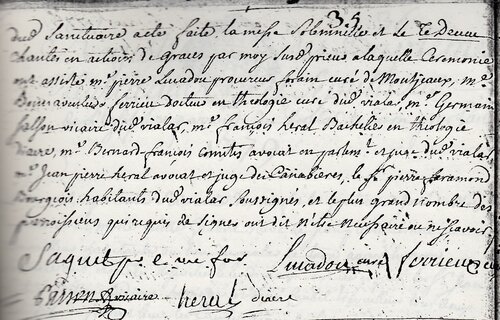 35
dud Sanctuaire acte faite la messe Solemnelle et Le Te Deum
chantes en actions de Graces par moy susd prieur a laquelle Ceremonie
ont assisté mr pierre Lucadou procureur forain curé de Montjaux, mr
Bonnaventure ferrieu docteur en theologie curé dud viala, mr Germain
vicaire dud vialar, mr françois heral Bachelier en theologie
diacre, mr Bernard françois Comitis avocat en parlemt et juge dud vialar
mr Jean pierre heral avocat et juge des Canabieres, le sr pierre
Bourgeois habitants dud vialar soussignés, et le plus grand nombre des
paroissiens qui requis de signer ont dit n'être necessaire ou ne sçavoir
Saquet p
Lucadou curé ferrieu cu
vicaire heral diacre